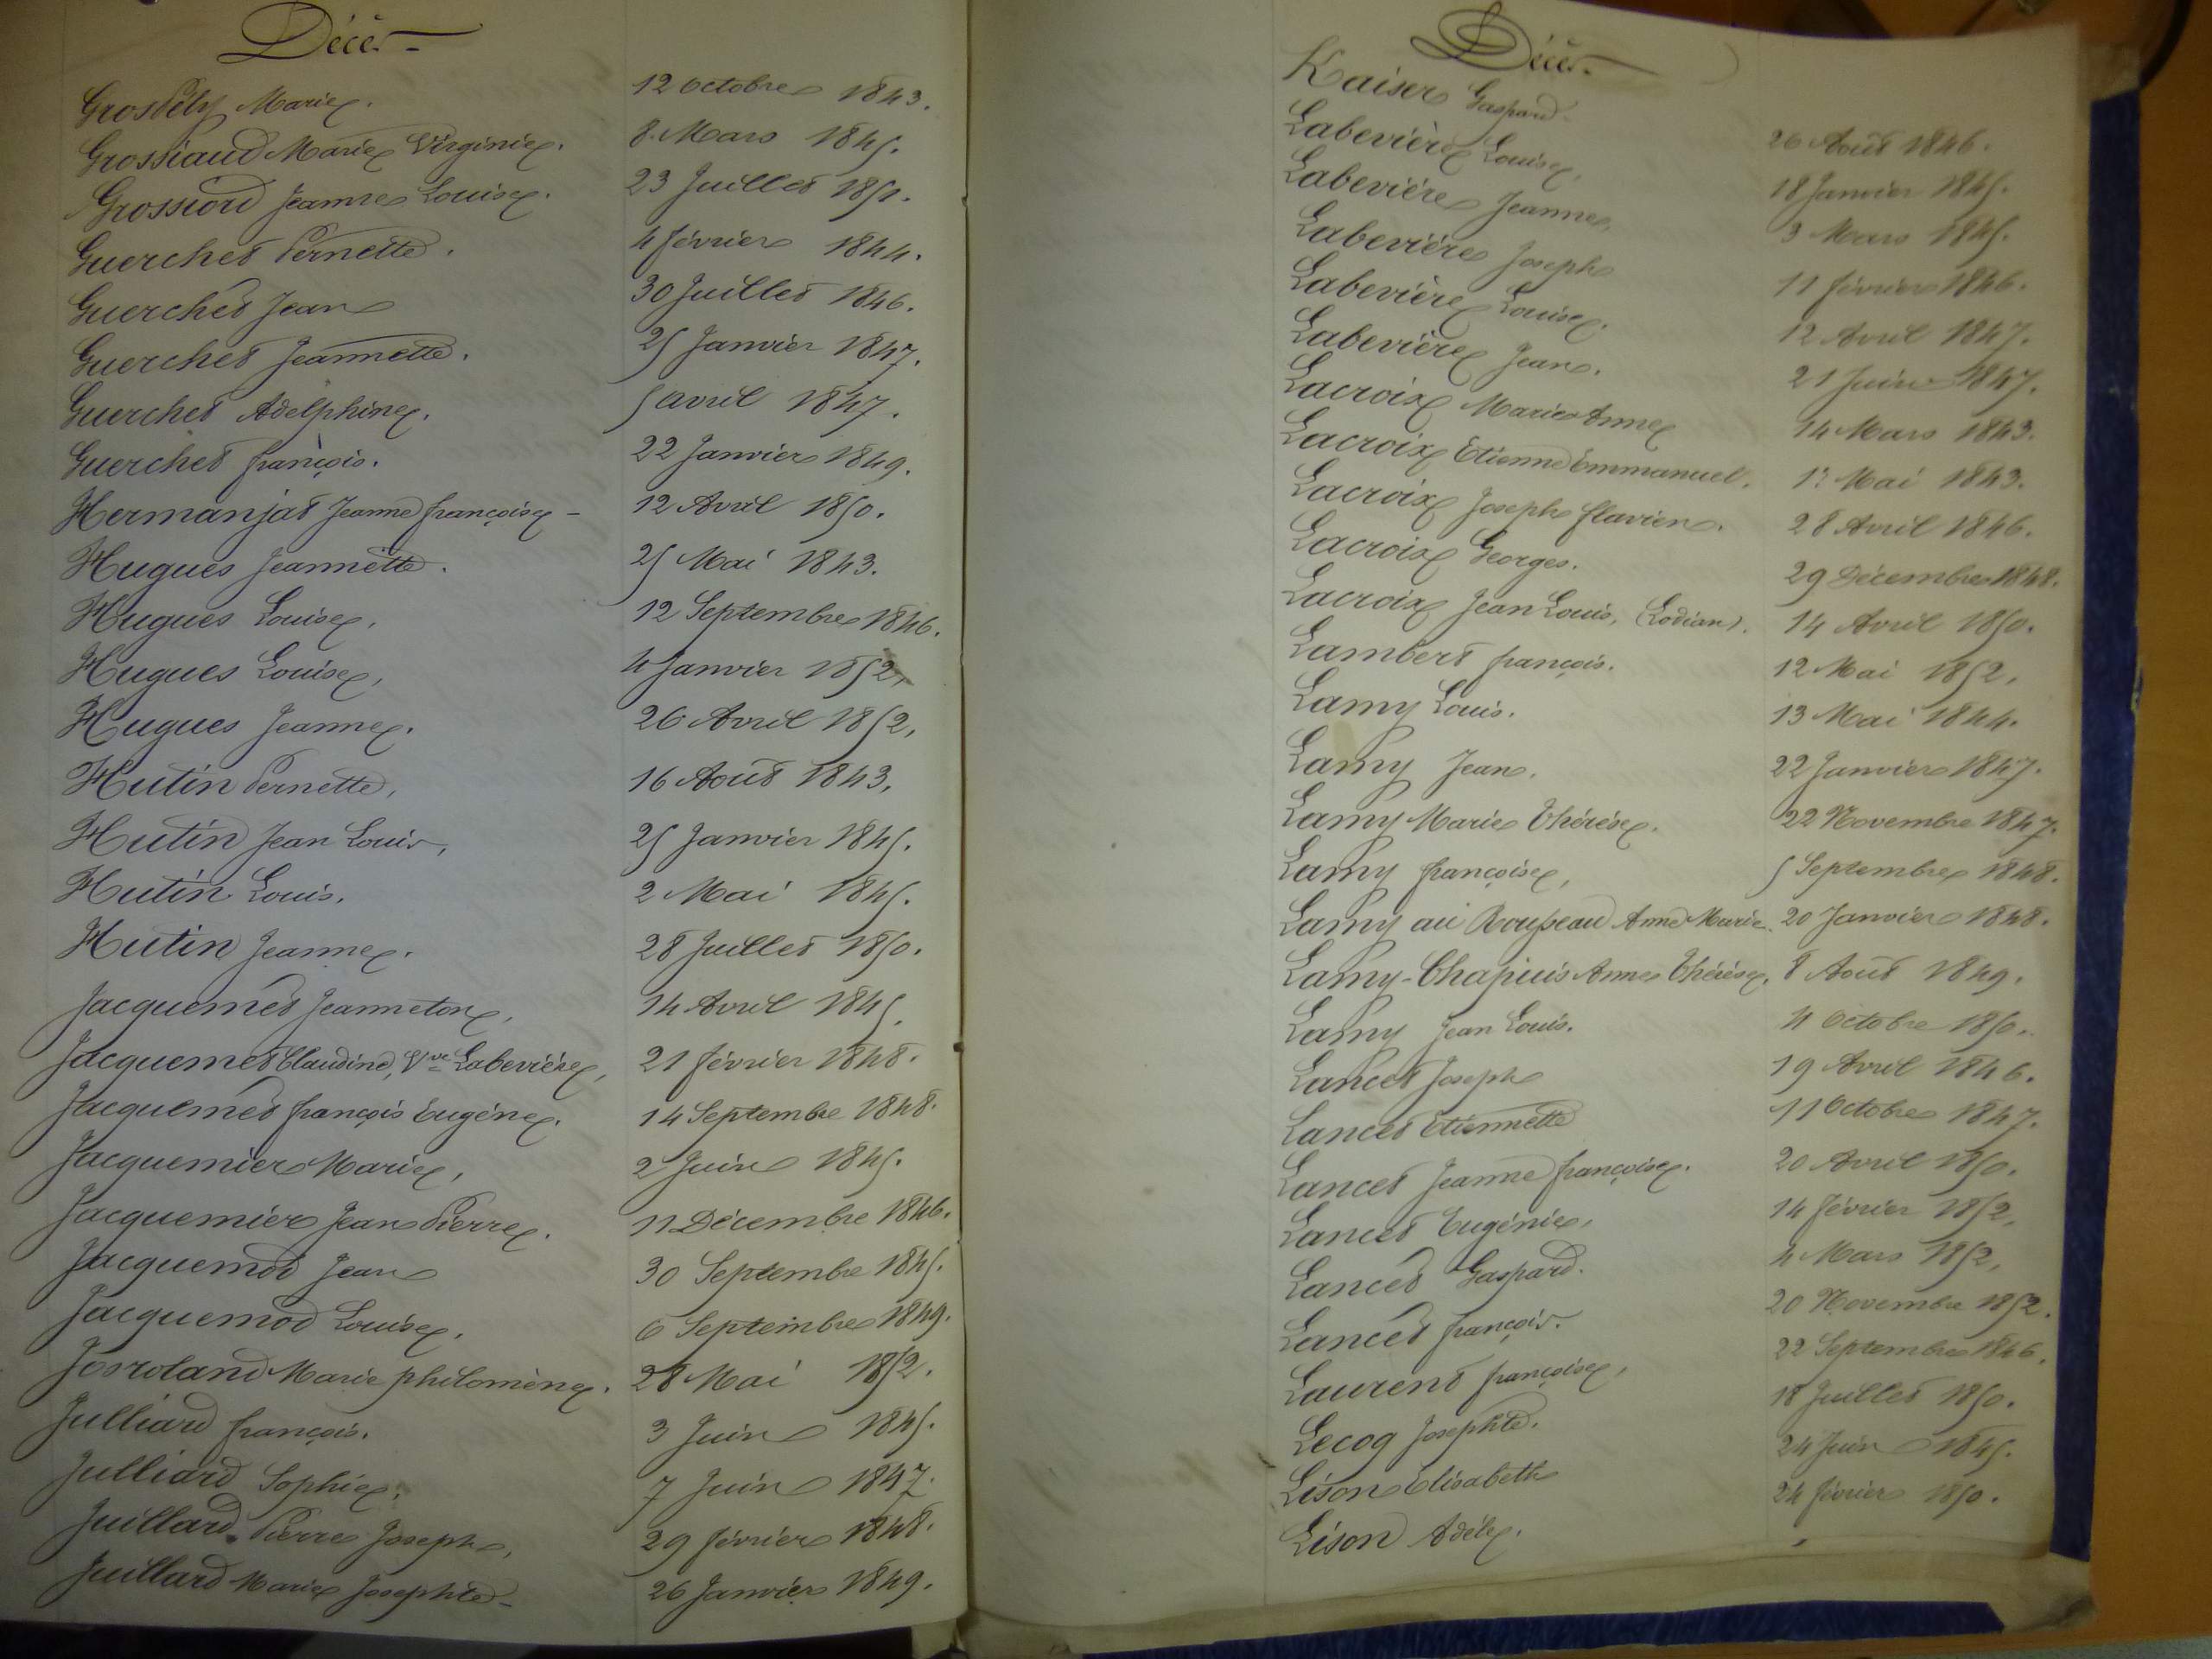 Décès
Grosfély Marie. 12 Octobre 1843.
Grossiaud Marie Virginie. 8 Mars 1845.
Grossiord Jeanne Louise. 23 Juillet 1851.
Guerchet Pernette. 4 février 1844.
Guerchet Jean 30 Juillet 1846.
Guerchet Jeannette. 25 Janvier 1847.
Guerchet Adelphine. 5 avril 1847.
Guerchet françois. 22 Janvier 1849.
Hermanjat Jeanne françoise - 12 Avril 1850.
Hugues Jeannette. 25 Mai 1843.
Hugues Louise, 12 Septembre 1846.
Hugues Louise, 4 Janvier 1852,
Hugues Jeanne. 26 Avril 1852,
Hutin Pernette, 16 Août 1843,
Hutin Jean Louis, 25 Janvier 1845.
Hutin Louis. 2 Mai 1845.
Hutin Jeanne. 28 Juillet 1850.
Jacquemet Jeannetone, 14 Avril 1845.
Jacquemet Claudine, Vve Labevière, 21 février 1848.
Jacquemet françois Eugène. 14 Septembre 1848.
Jacquemier Marie, 2 Juin 1845.
Jacquemier Jean Pierre. 11 Décembre 1846.
Jacquemod Jean 30 Septembre 1845.
Jacquemod Louise. 6 Septembre 1849.
Josroland Marie philomène. 28 Mai 1852.
Julliard françois. 3 Juin 1845.
Julliard Sophie. 7 Juin 1847.
Juillard Pierre Joseph, 29 février 1848.
Juillard Marie Josephte - 26 Janvier 1849.
Décès
Kaiser Gaspard. 26 Août 1846.
Labevière Louise, 18 Janvier 1845.
Labevière Jeanne, 3 Mars 1845.
Labevière Joseph 11 février 1846.
Labevière Louise. 12 Avril 1847.
Labevière Jean. 21 Juin 1847.
Lacroix Marie Anne 14 Mars 1843.
Lacroix Etienne Emmanuel. 1er Mai 1843.
Lacroix Joseph flavien. 28 Avril 1846.
Lacroix Georges. 29 Décembre 1848.
Lacroix Jean Louis, (Lodian). 14 Avril 1850.
Lambert françois. 12 Mai 1852,
Lamy Louis. 13 Mai 1844.
Lamy Jean. 22 Janvier 1847.
Lamy Marie Thérèse. 22 Novembre 1847.
Lamy françoise, 5 Septembre 1848.
Lamy au Roupeau Anne Marie. 20 Janvier 1848.
Lamy-Chapuis Anne Thérèse. 8 Août 1849.
Lamy Jean Louis. 4 Octobre 1850.
Lancet Joseph 19 Avril 1846.
Lancet Etiennette 11 Octobre 1847.
Lancet Jeanne françoise. 20 Avril 1850.
Lancet Eugénie, 14 février 1852,
Lancet Gaspard. 4 Mars 1852,
Lancet françois. 20 Novembre 1852.
Laurent françoise, 22 Septembre 1846.
Lecoq Josephte. 18 Juillet 1850.
Lison Elisabeth 24 Juin 1845.
Lison Adèle. 24 février 1850.